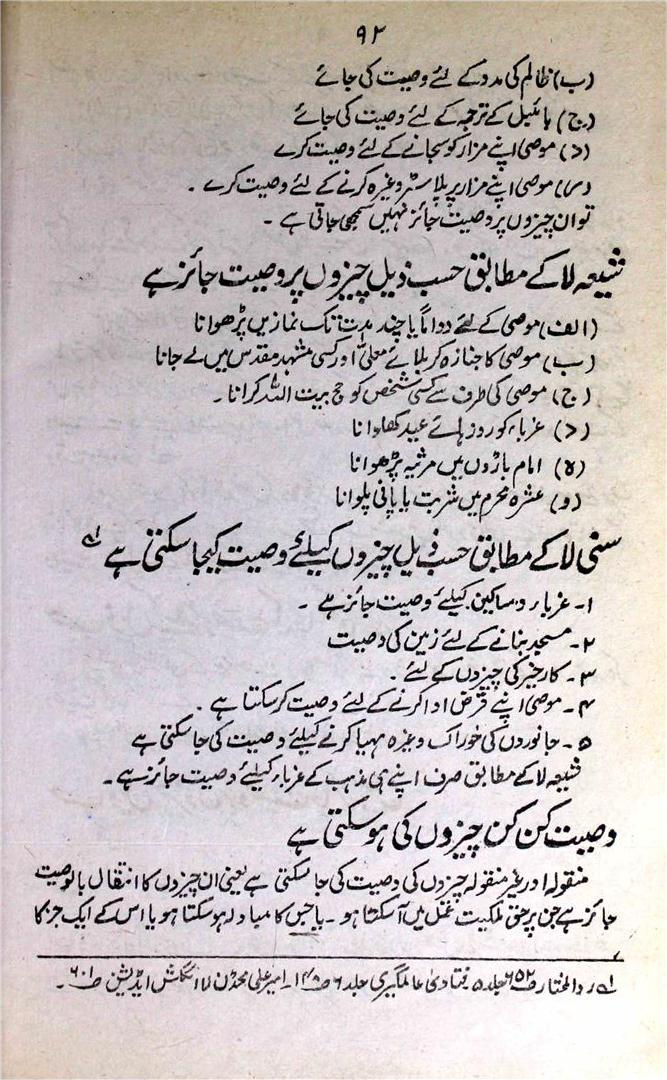 ۹۲
(ب) ظالم کی مدد کے لئے وصیت کی جائے
(ج) بائبل کے ترجمہ کے لئے وصیت کی جائے
(د) موصی اپنے مزار کو سجانے کے لئے وصیت کرے
(س) موصی اپنے مزار پر پلاسٹر وغیرہ کرنے کے لئے وصیت کرے ۔
تو ان چیزوں پر وصیت جائز نہیں سمجھی جاتی ہے ۔
شیعہ لا کے مطابق حسب ذیل چیزوں پر وصیت جائز ہے
(الف) موصی کے لئے دوامًا یا چند مدت تک نمازیں پڑھوانا
(ب) موصی کا جنازہ کربلائے معلیٰ اور کسی مشہد مقدس میں لے جانا
(ج) موصی کی طرف سے کسی شخص کو حج بیت اللہ کرانا ۔
(د) غرباء کو روز ہائے عید کھلوانا
(ہ) امام باڑوں میں مرثیہ پڑھوانا
(و) عشرہ محرم میں شربت یا پانی پلوانا
سنی لا کے مطابق حسب ذیل چیزوں کیلئے وصیت کیجا سکتی ہے لہ
۱۔ غرباء و مساکین کیلئے وصیت جائز ہے ۔
۲۔ مسجد بنانے کے لئے زمین کی وصیت
۳۔ کار خیر کی چیزوں کے لئے ۔
۴۔ موصی اپنے قرض ادا کرنے کے لئے وصیت کر سکتا ہے ۔
۵۔ جانوروں کی خوراک وغیرہ مہیا کرنے کیلئے وصیت کی جا سکتی ہے
شیعہ لا کے مطابق صرف اپنے ہی مذہب کے غرباء کیلئے وصیت جائز ہے ۔
وصیت کن کن چیزوں کی ہو سکتی ہے
منقولہ اور غیر منقولہ چیزوں کی وصیت کی جا سکتی ہے یعنی ان چیزوں کا انتقال بالوصیت
جائز ہے جن پر حق ملکیت عمل میں آ سکتا ہو ۔ یا جس کا مبادلہ ہو سکتا ہو یا اس کے ایک جز کا
لہ رد المختار ص ۶۵۲ جلد ۵ فتاویٰ عالمگیری جلد ۶ ص ۱۴۸۔ امیر علی محمڈن لا انگلش ایڈیشن ص ۶۰۱ ۔